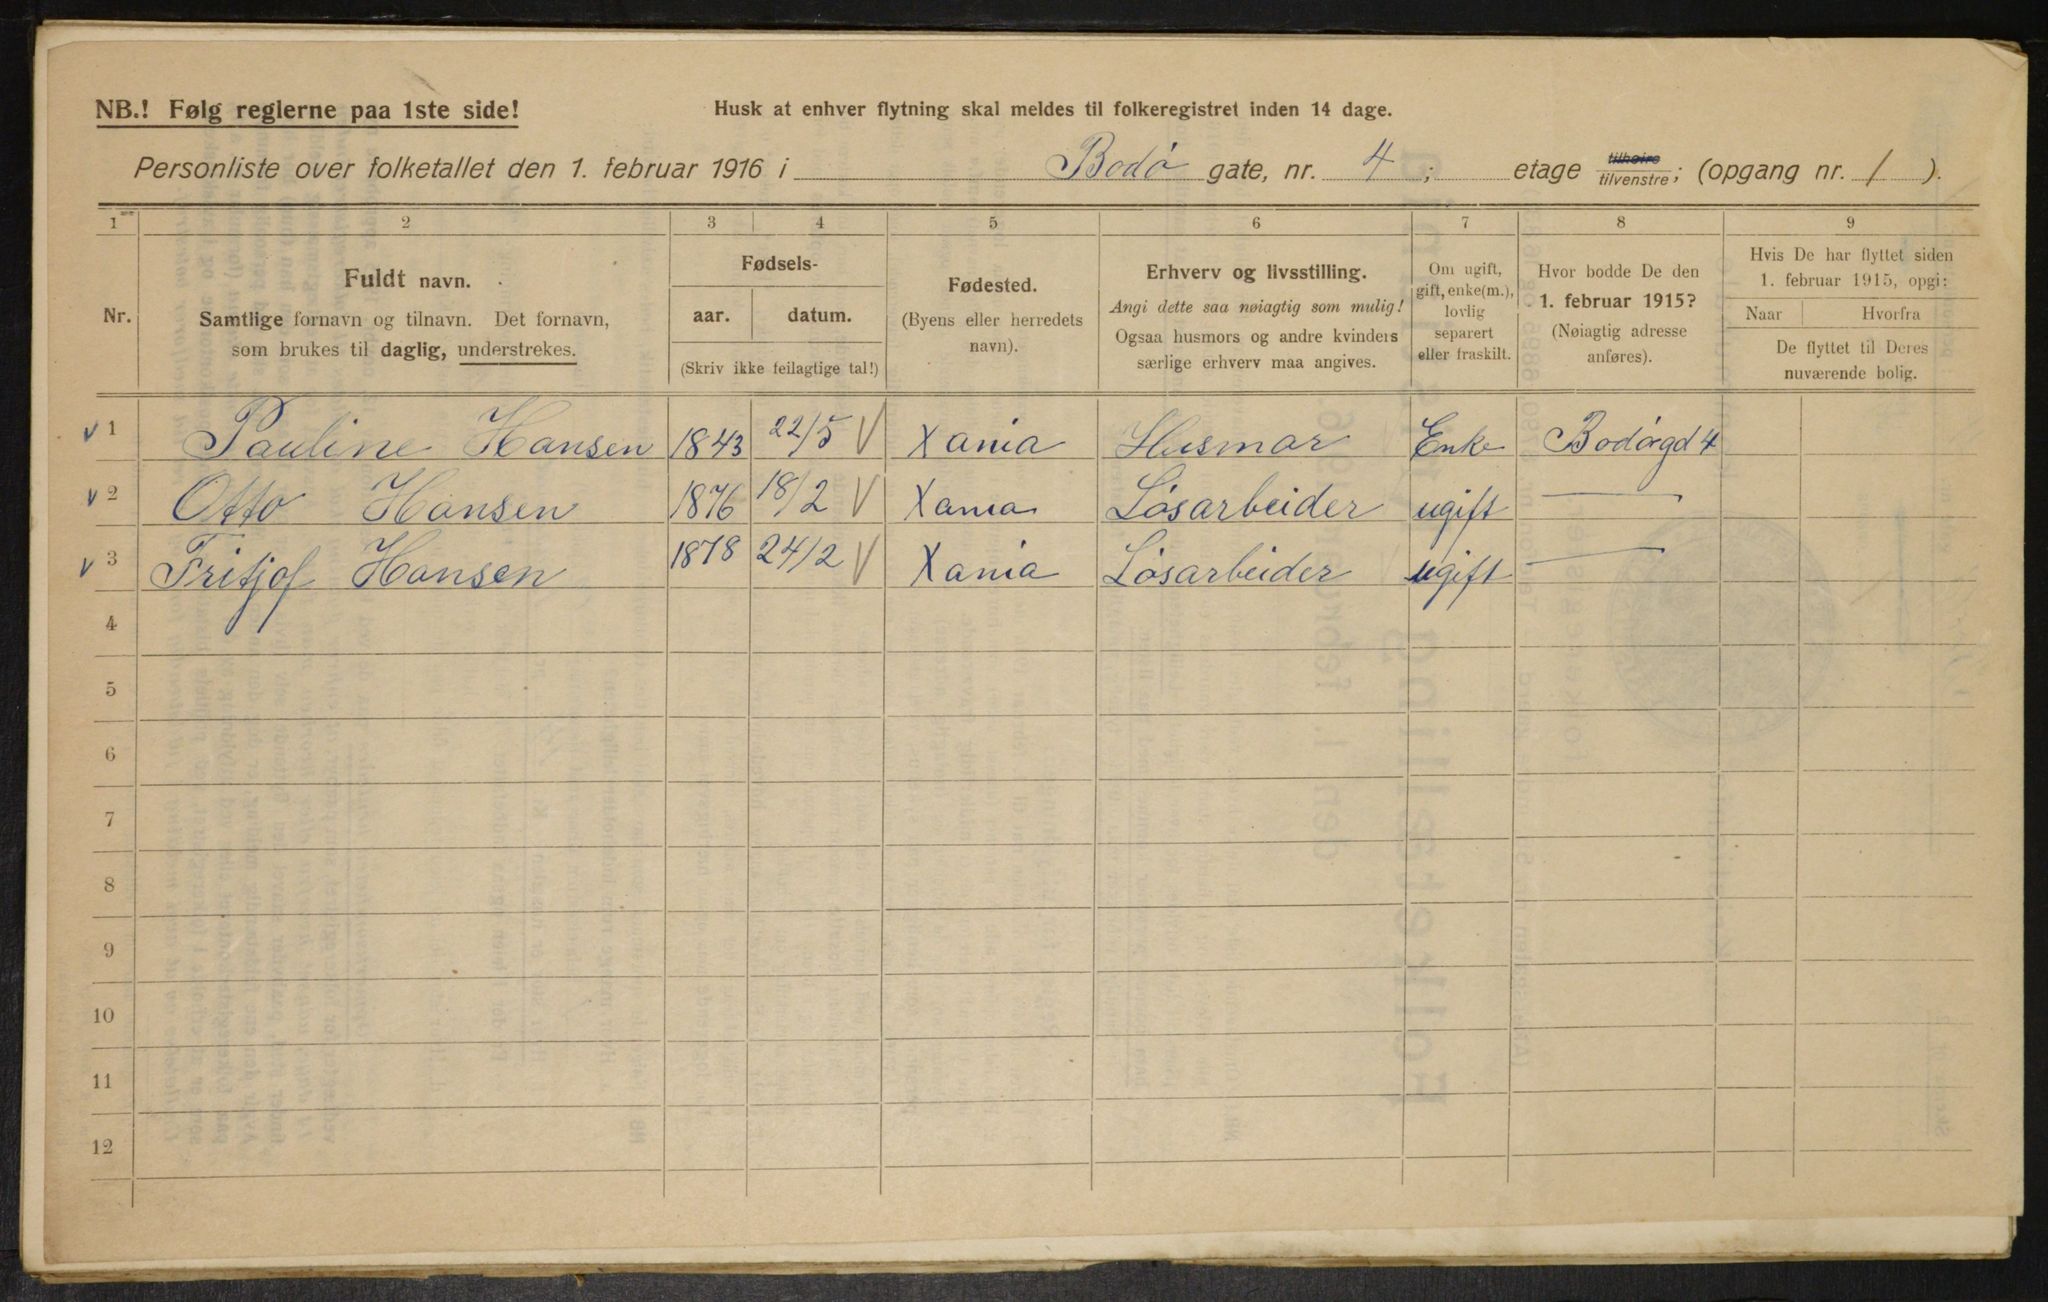 NB.! Følg reglerne paa 1ste side!
Husk at enhver flytning skal meldes til folkeregistret inden 14 dage.
Personliste over folketallet den 1. februar 1916 i Bodø gate, nr. 4; etage tilhøire tilvenstre; (opgang nr. 1).
1 2 3 4 5 6 7 8 9
Nr.
Fuldt navn.
Samtlige fornavn og tilnavn. Det fornavn,
som brukes til daglig, understrekes.
Fødsels-
aar. datum.
(Skriv ikke feilagtige tal!)
Fødested.
(Byens eller herredets
navn).
Erhverv og livsstilling.
Angi dette saa nøiagtig som mulig!
Ogsaa husmors og andre kvinders
særlige erhverv maa angives.
Om ugift,
gift, enke(m.),
lovlig
separert
eller fraskilt.
Hvor bodde De den
1. februar 1915?
(Nøiagtig adresse
anføres).
Hvis De har flyttet siden
1. februar 1915, opgi:
Naar Hvorfra
De flyttet til Deres
nuværende bolig.
1 Pauline Hansen 1843 22/5 Xania Husmor Enke Bodøgd 4
2 Otto Hansen 1876 18/2 Xania Løsarbeider ugift —
3 Fritjof Hansen 1878 24/2 Xania Løsarbeider ugift —
4
5
6
7
8
9
10
11
12